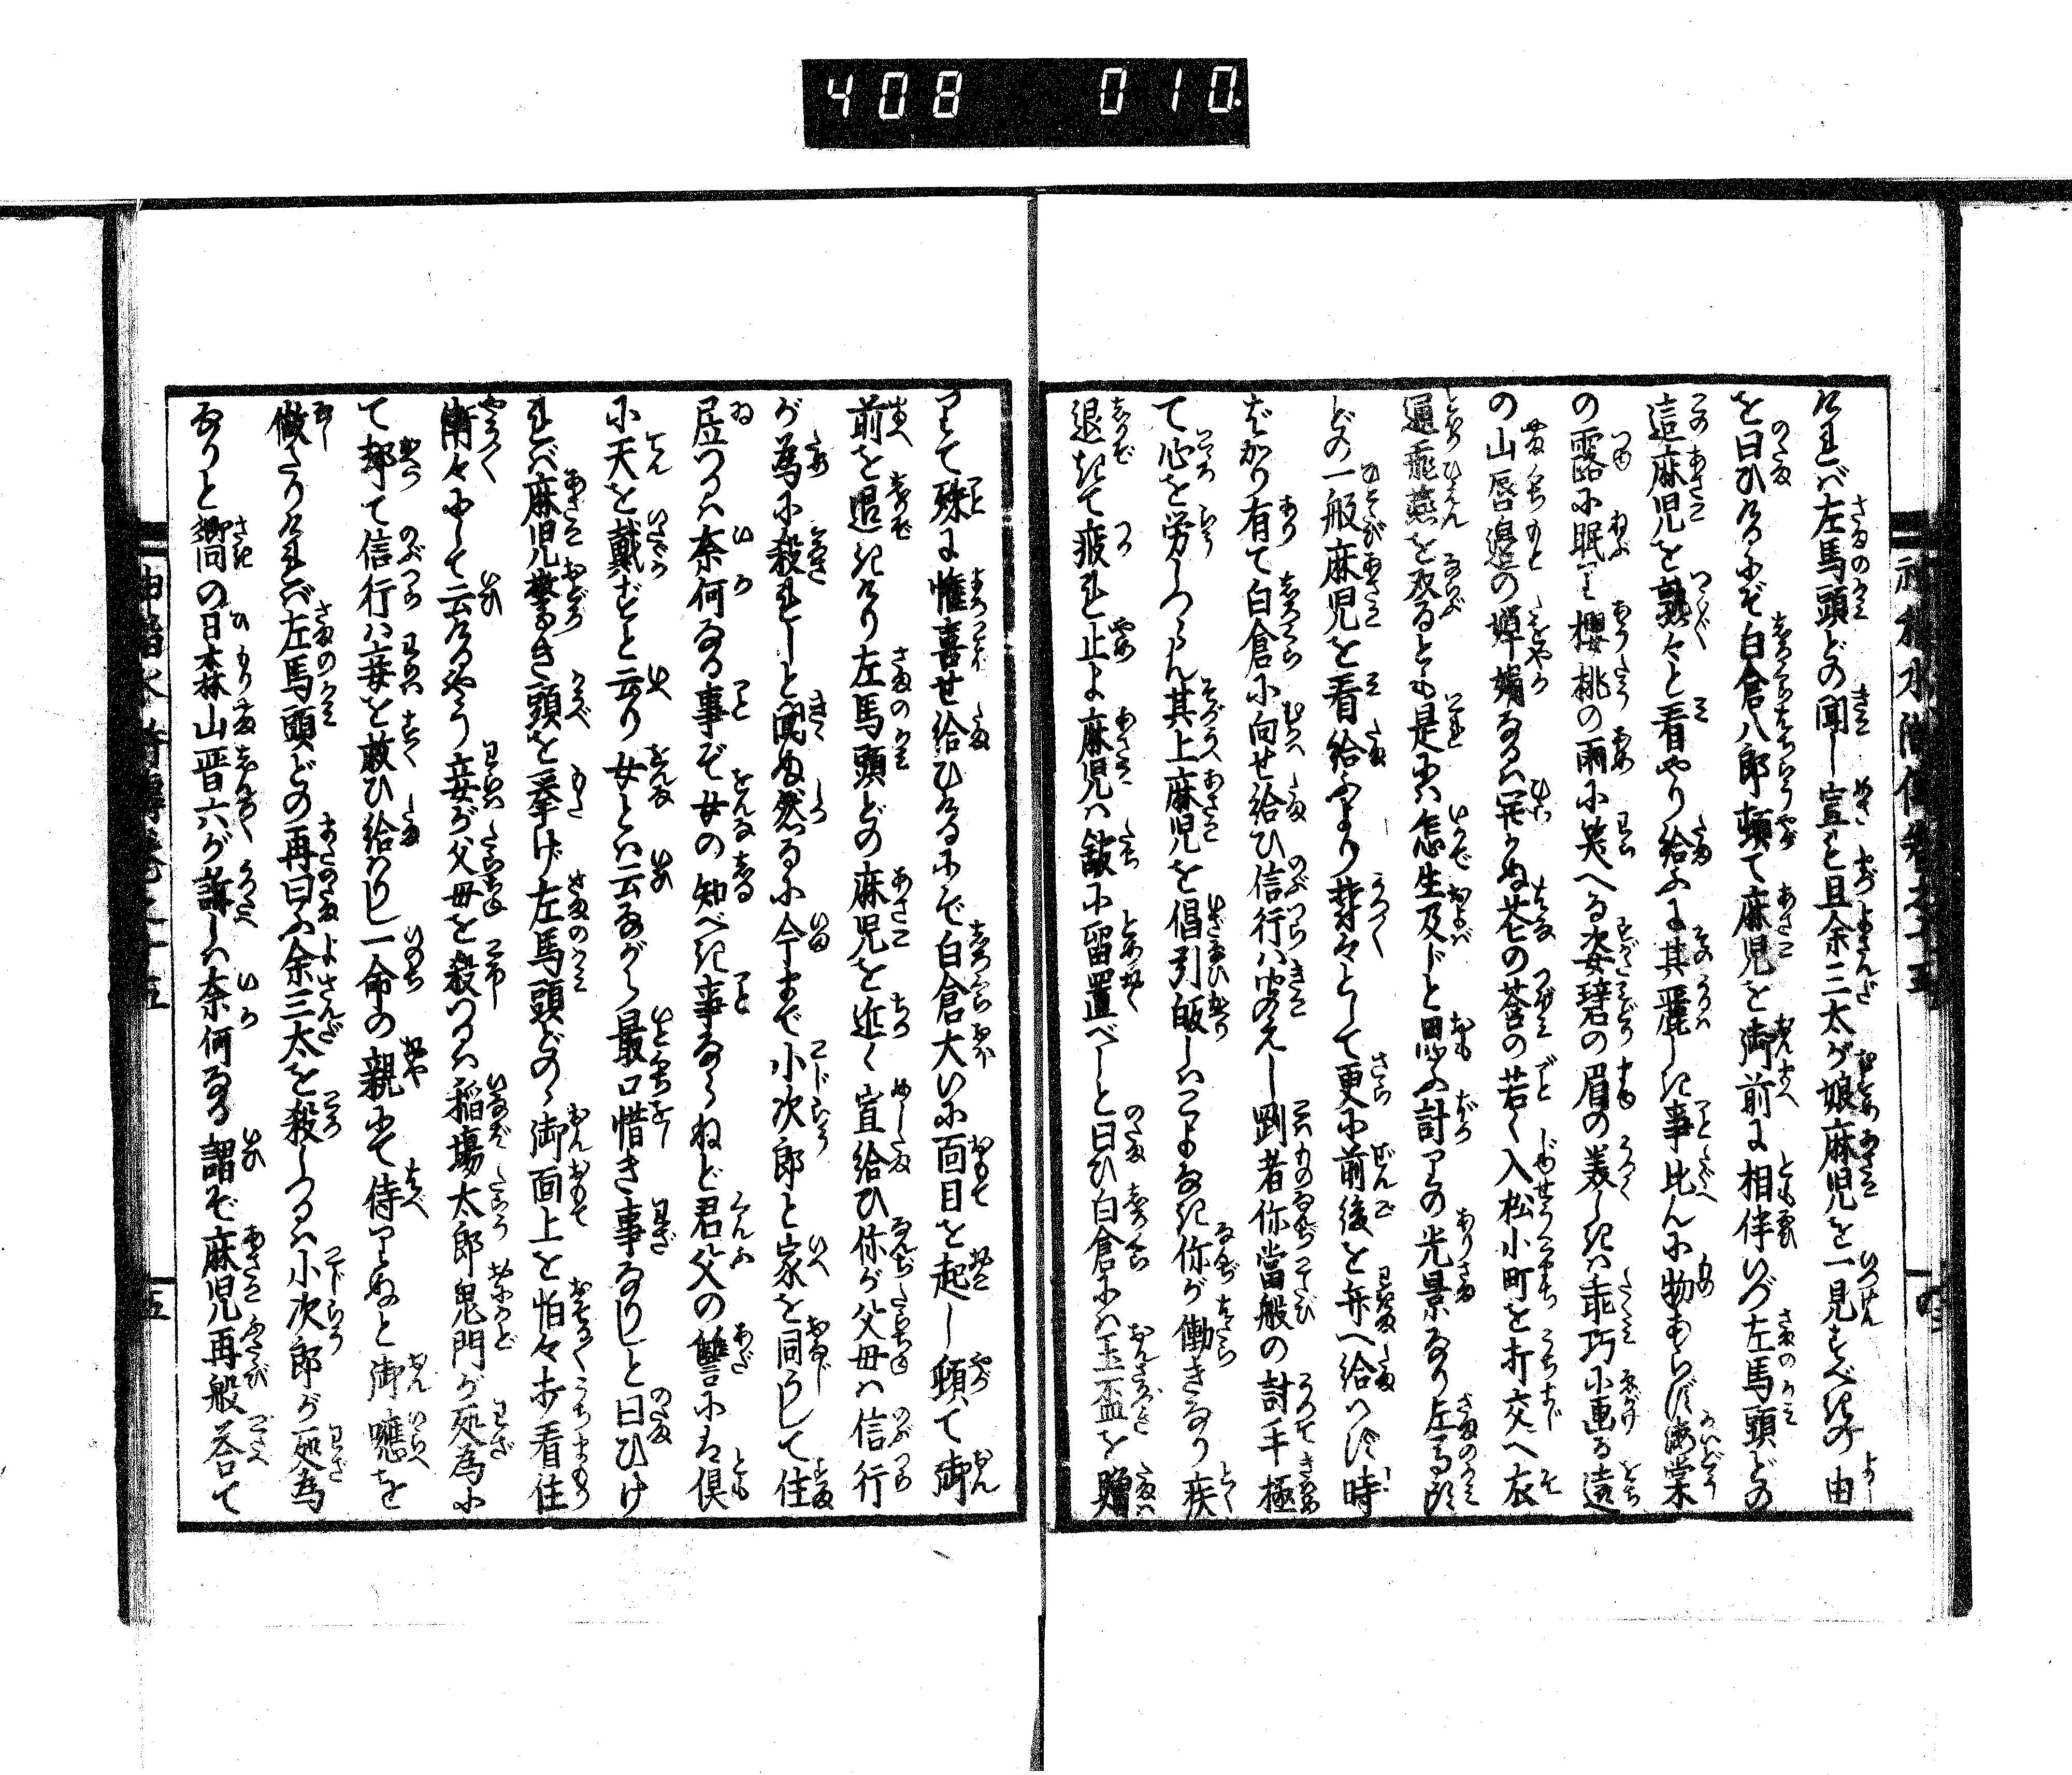 408 010
けれバ左馬頭どの聞し宣ヒ且余三太が娘麻児を一見すべきの由
を曰ひけるにぞ白倉八郎頓て麻児を御前に相伴いづ左馬頭どの
這麻児を熟々と看やり給ふに其麗しき事比んに物あらず海棠
の露に眠り櫻桃の雨に笑へる姿碧の眉の美しきハ乖巧に画る遠
の山唇邉の嬋娟なるハ開かぬ花の莟の若く入松小町を打交へ衣
通飛燕を双るとも是にハ怎生及ドと思ふ計りの光景なり左馬頭
どの一般麻児を看給ふより夢々として更に前後を弁へ給ハず時
ばかり有て白倉に向せ給ひ信行ハ聞えし剛者你當般の討手極
て心を労しつらん其上麻児を倡引皈しハこよなき你が働きなり疾
退きて疲れ止よ麻児ハ舘に留置べしと曰ひ白倉にハ玉盃を贈
りて殊に懽喜せ給ひけるにぞ白倉大いに面目を起し頓て御
前を退きけり左馬頭どの麻児を近く宣給ひ你が父母ハ信行
が為に殺れしと聞ぬ然るに今まで小次郎と家を同うして住
居つるハ奈何なる事ぞ女の知べき事ならねど君父の讐にハ倶
に天を戴ずと云り女とハ云ながら最口惜き事なりしと曰ひけ
れバ麻児驚き頭を擡げ左馬頭どのゝ御面上を怕々打看住
漸々にして云けるやう妾が父母を殺つるハ稲場太郎鬼門が所為に
て却て信行ハ妾を救ひ給はりし一命の親にて侍りぬと御應を
做たりけれバ左馬頭どの再曰ふ余三太を殺しつるハ小次郎が所為
なりと郷向の日森山晋六が訴しハ奈何なる謂ぞ麻児再般答て
五